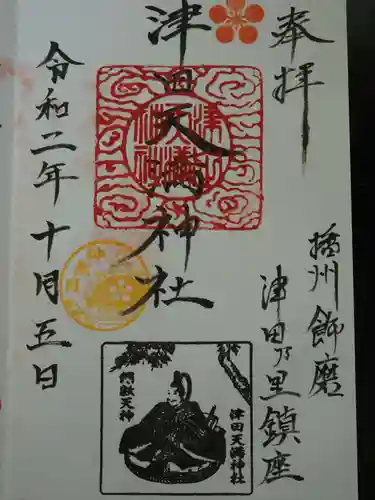 奉拝
播州飾磨
津田乃里鎮座
津田天満神社
令和二年十月五日
津田天満神社
綱敷天神